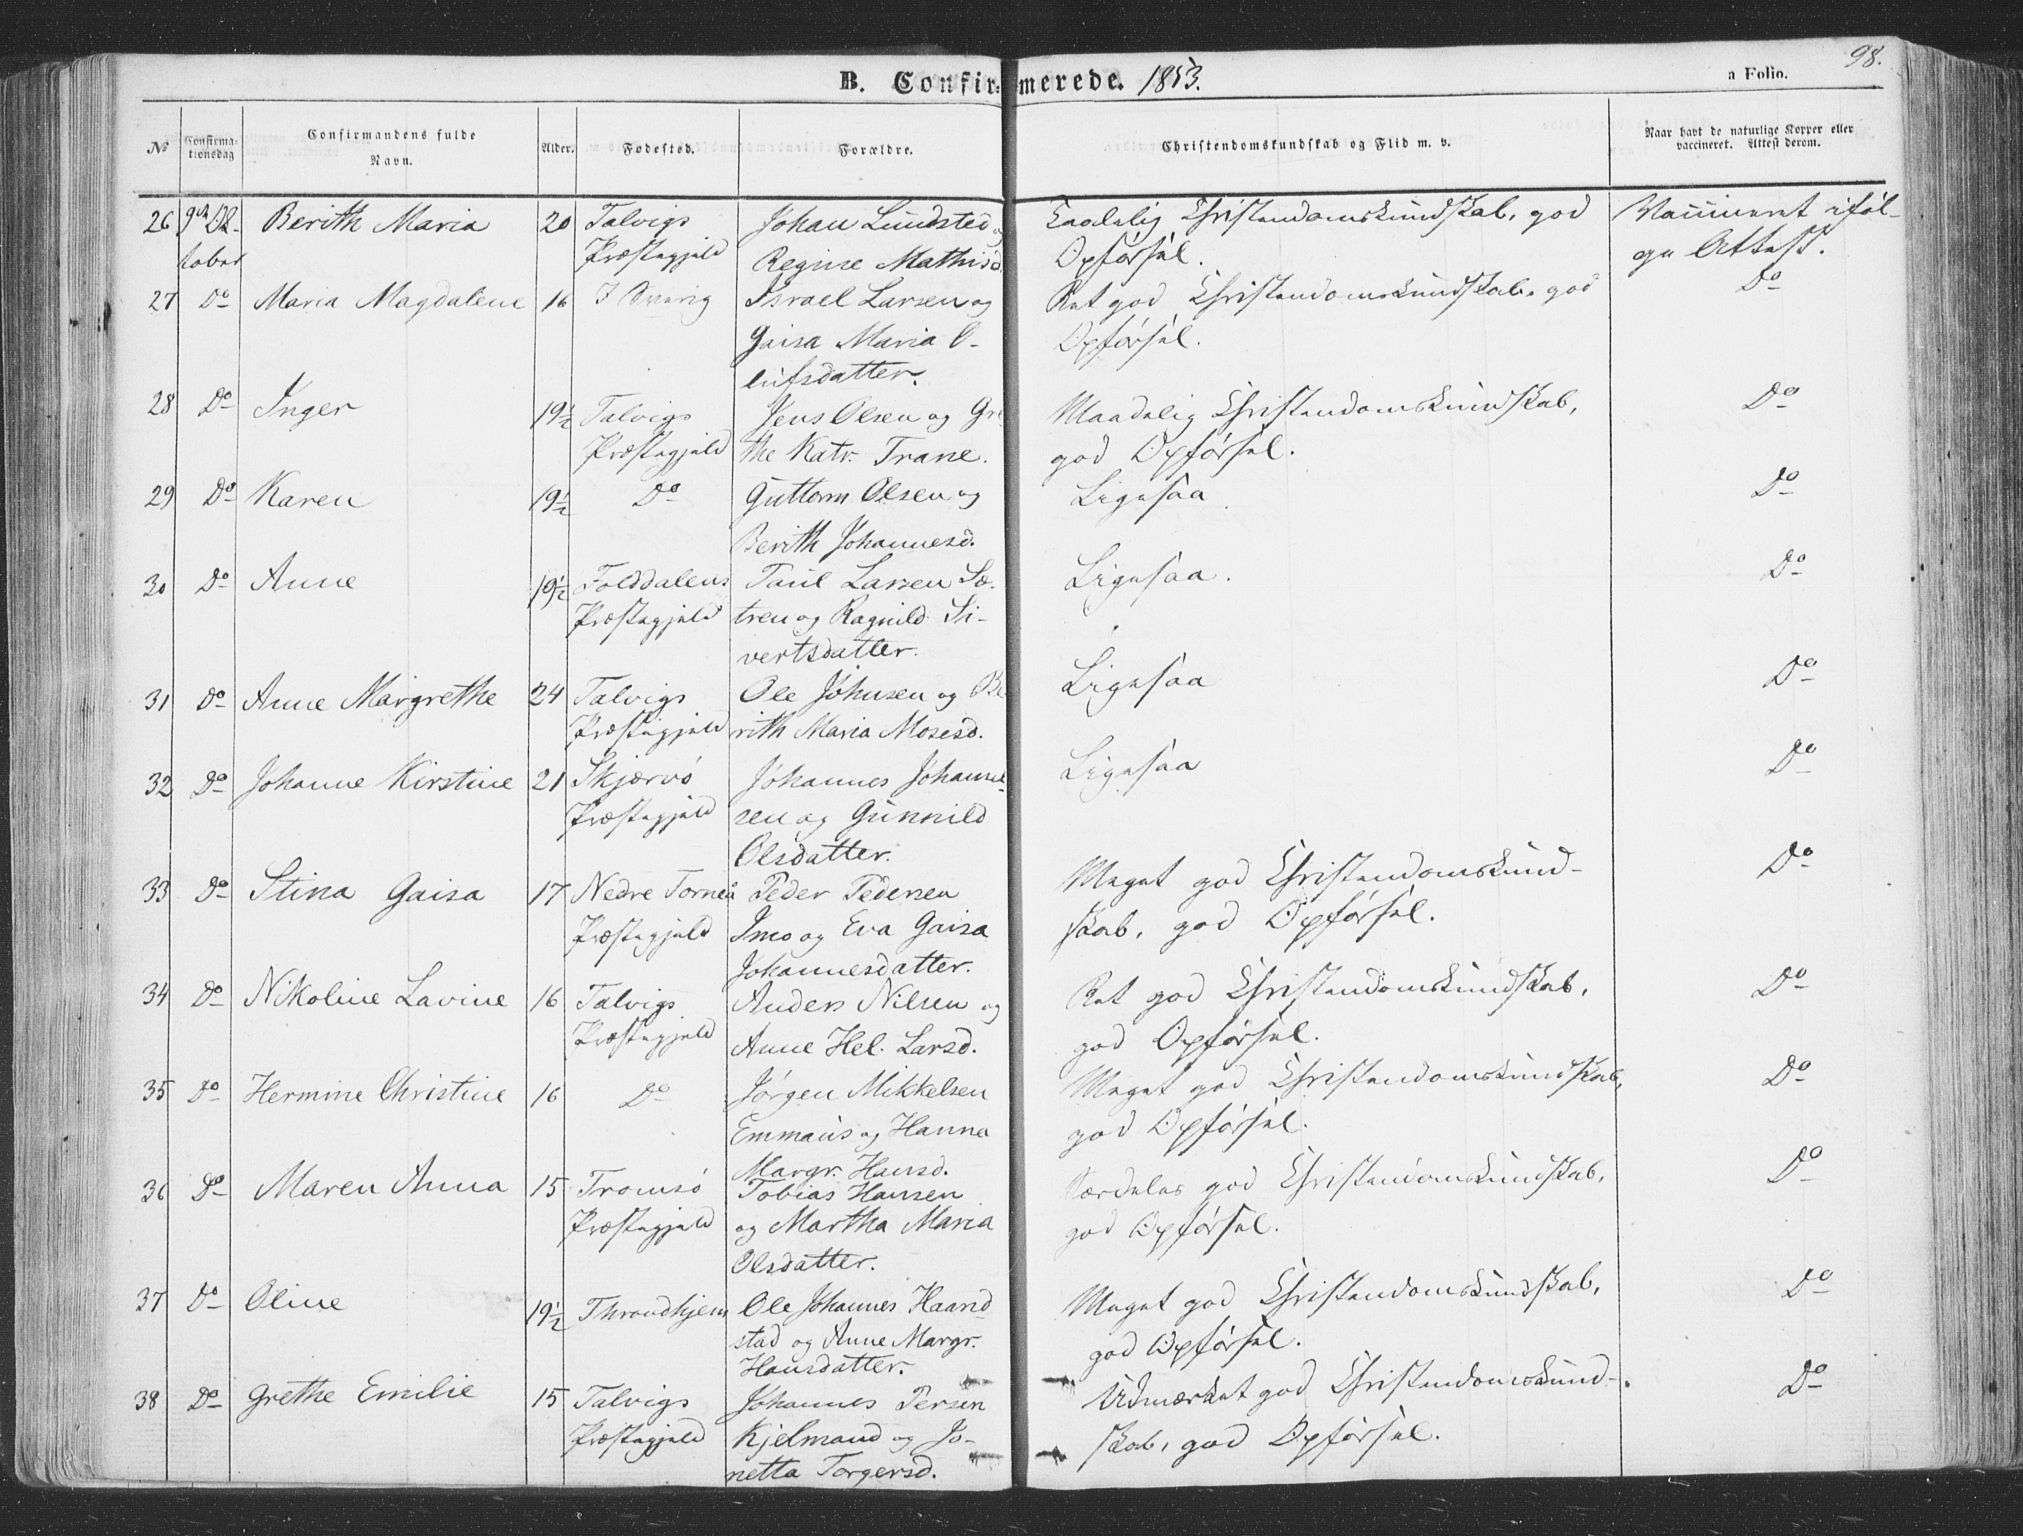 98.
B. Confirmerede. 1853. a Folio.
No Confirmationsdag Confirmandens fulde Navn. Alder. Fødested. Forældre. Christendomskundskab og Flid m. v. Naar havt de naturlige Kopper eller vaccineret. Attest derom.
26 9de Ok- Berith Maria 20 Talvigs Johan Lundsted og Maadelig Christendomskundskab, god Vaccineret iføl-
tober Præstegjeld Regine Mathisd. Opførsel. ge Attest.
27 Do Maria Magdalene 16 I Sverig Israel Larsen og Ret god Christendomskundskab, god Do
Gaisa Maria O- Opførsel.
lufsdatter.
28 Do Inger 19½ Talvigs Jens Olsen og Gre Maadelig Christendomskundskab, Do
Præstegjeld the Katr. Trane. god Opførsel.
29 Do Karen 19½ Do Guttorm Olsen og Ligesaa Do
Berith Johannesd.
30 Do Anne 19½ Folddalens Paul Larsen Sæ- Ligesaa. Do
Præstegjeld tren og Ragnild Si-
vertsdatter.
31 Do Anne Margrethe 24 Talvigs Ole Johnsen og Be Ligesaa Do
Præstegjeld rith Maria Mosesd.
32 Do Johanne Kirstine 21 Skjærvø Johannes Johanne- Ligesaa Do
Præstegjeld sen og Gunnild
Olsdatter.
33 Do Stina Gaisa 17 Nedre Torneå Peder Pedersen Meget god Christendomskund- Do
Præstegjeld Imo og Eva Gaisa skab, god Opførsel.
Johannesdatter.
34 Do Nikoline Lavine 16 Talvigs Anders Nilsen og Ret god Christendomskundskab, Do
Præstegjeld Anne Hel. Larsd. god Opførsel.
35 Do Hermine Christine 16 Do Jørgen Mikkelsen Meget god Christendomskundskab, Do
Emmaus og Hanna god Opførsel.
Margr. Hansd.
36 Do Maren Anna 15 Tromsø Tobias Hansen Særdeles god Christendomskundskab, Do
Præstegjeld og Martha Maria god Opførsel.
Olsdatter.
37 Do Oline 19½ Throndhjem Ole Johannes Haand Meget god Christendomskundskab, Do
stad og Anne Margr. god Opførsel.
Hansdatter.
38 Do Grethe Emilie 15 Talvigs Johannes Persen Udmærket god Christendomskund- Do
Præstegjeld Kjelmand og Jo- skab, god Opførsel.
netta Torgersd.